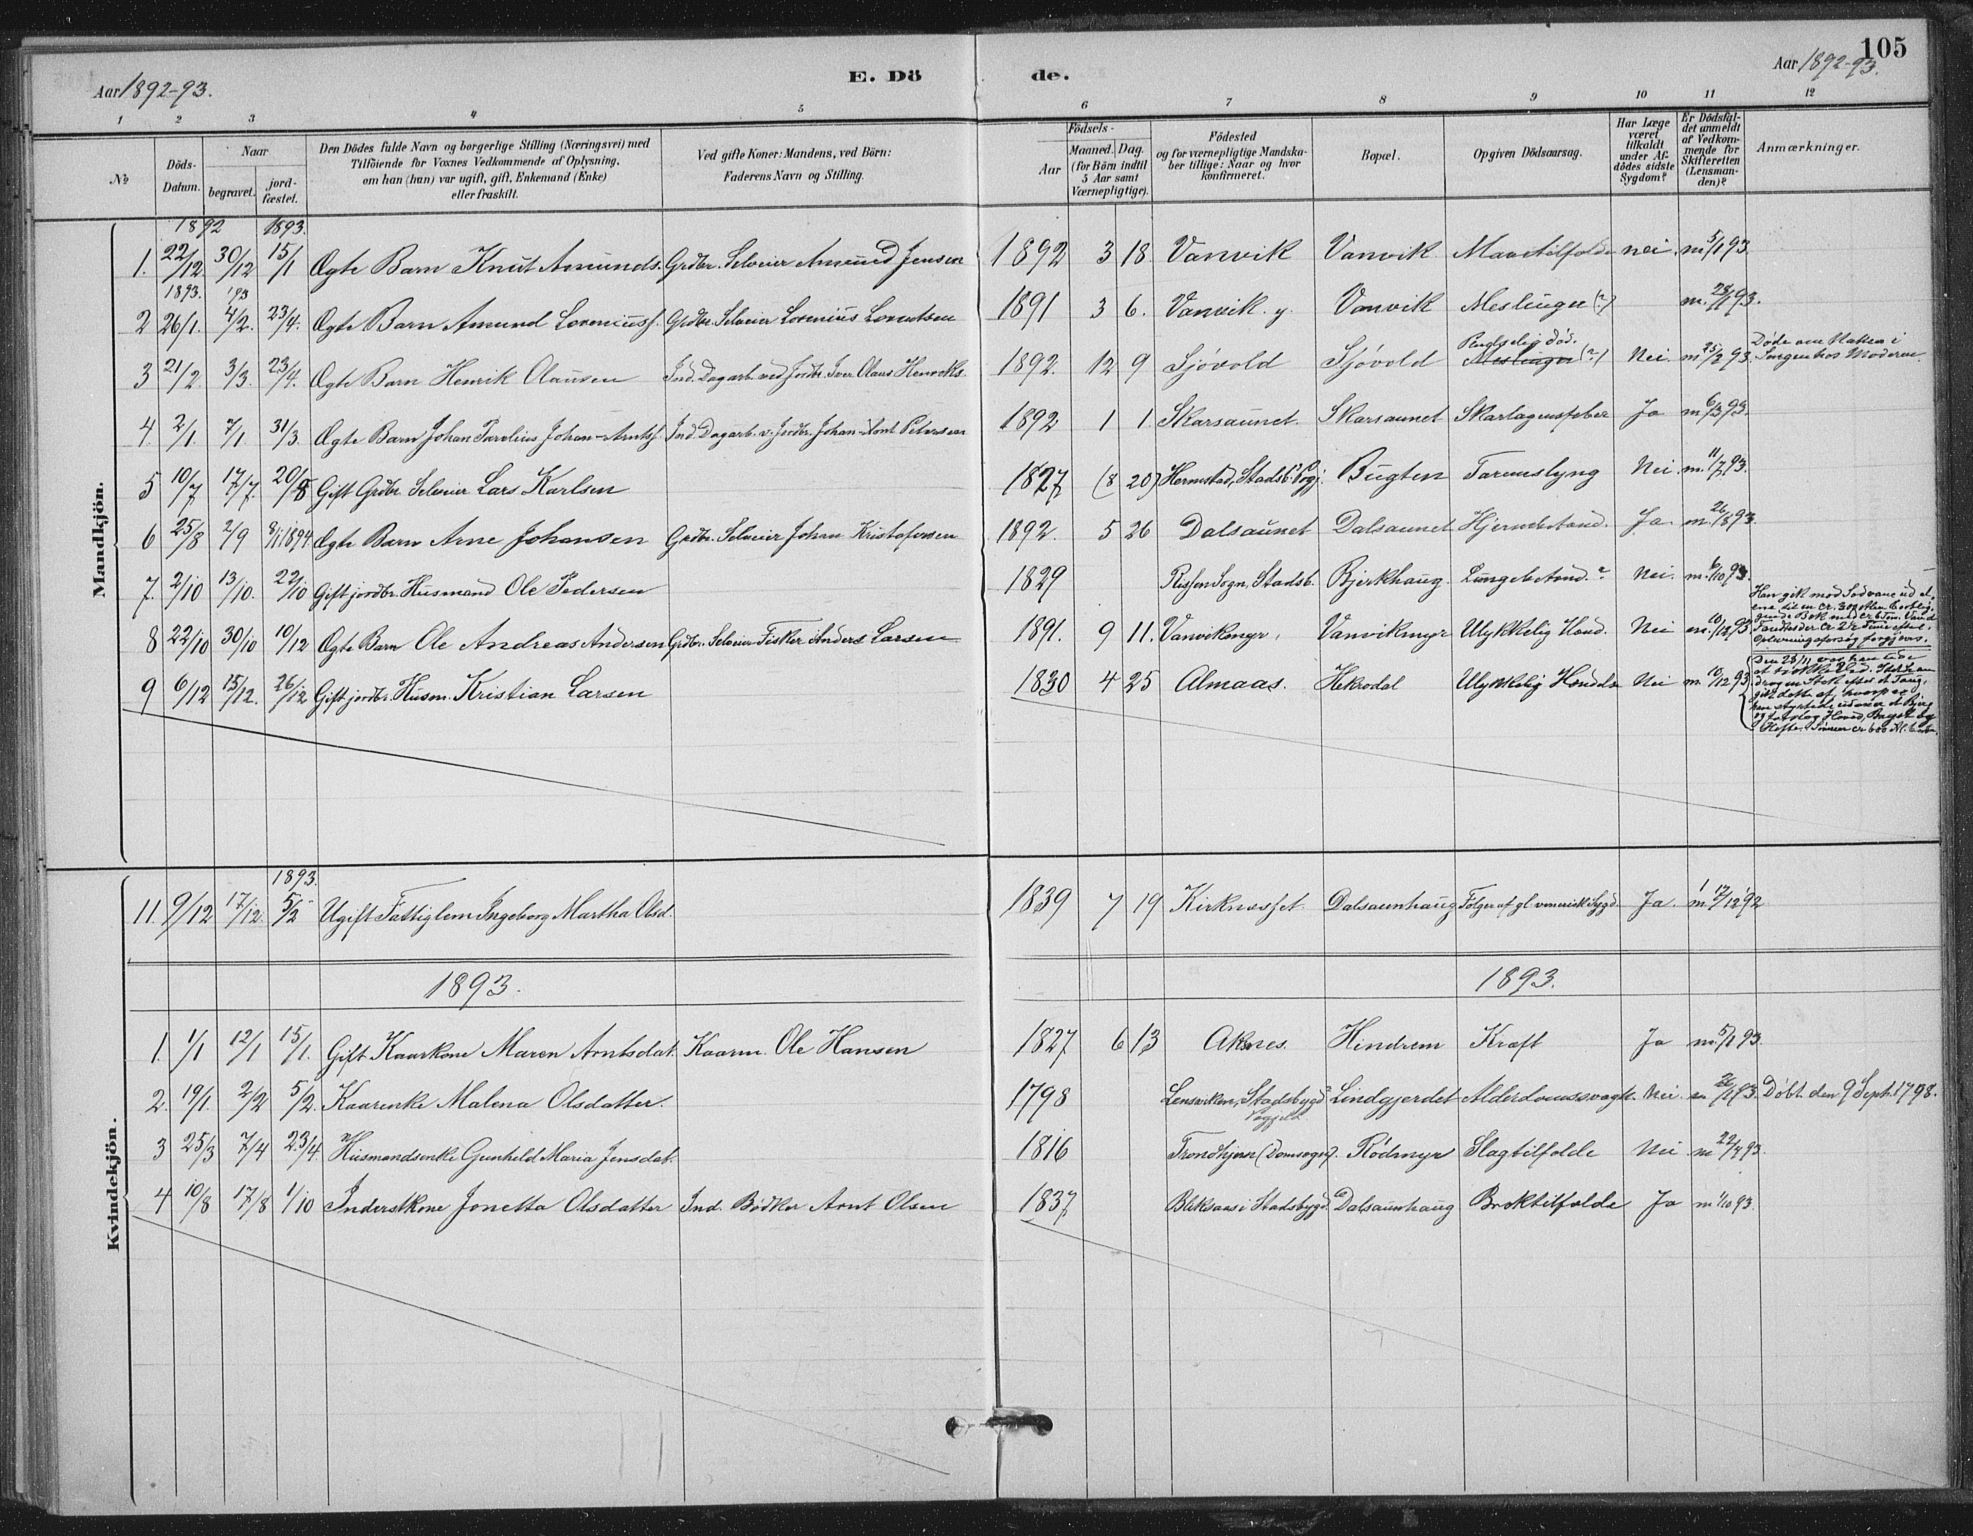 105
Aar 1892-93.
E. Dö de.
Aar 1892-93.
1 2 3 4 5 6 7 8 9 10 11 12
No
Döds-Datum.
Naar
begravet.
jord-fæstet.
Den Dödes fulde Navn og borgerlige Stilling (Næringsvei) med
Tilföiende for Voxnes Vedkommende af Oplysning,
om han (hun) var ugift, gift, Enkemand (Enke)
eller fraskilt.
Ved gifte Koner: Mandens, ved Börn:
Faderens Navn og Stilling.
Födsels-
Aar
Maaned. Dag.
(for Börn indtil
5 Aar samt
Værnepligtige).
Födested
og for værnepligtige Mandska-
ber tillige: Naar og hvor
konfirmeret.
Bopæl.
Opgiven Dödsaarsag.
Har Læge
været
tilkaldt
under Af-
dödes sidste
Sygdom?
Er Dödsfal-
det anmeldt
af Vedkom-
mende for
Skifteretten
(Lensman-
den)?
Anmærkninger.
Mandkjön.
1892 1893.
1. 22/12 30/12 15/1 Ægte Barn Knut Amunds. Grdbr. Selveier Amund Jensen 1892 3 18. Vanvik Vanvik Mavetilfælde nei. m. 5/1 93.
1893. '93
2 26/1. 4/2. 23/4. Ægte Barn Amund Loreniusf. Grdbr. Selveier Lorenius Lorntsen 1891 3 6. Vanvik. y. Vanvik Meslinger (?) m. 28/1 93.
3 21/2. 3/3. 23/4. Ægte Barn Henrik Olausen Ind. Dagarb. ved Jordbr. Iver Olaus Henriks. 1892. 12 9 Sjøvold Sjøvold Pludselig død. Meslinger (?) Nei. m. 25/2 93. Døde om Natten i Sengen hos Moderen.
4. 2/1 7/1 31/3. Ægte Barn Johan Parelius Johan-Arntsf. Ind. Dagarb. v. Jordbr. Johan-Arnt Petersen 1892 1 1. Skarsaunet. Skarsaunet Skarlagensfeber Ja m. 6/3 93.
5 10/7 17/7. 20/8 Gift Grdbr. Selveier Lars Karlsen 1827 (8 20) Hermstad, Stadsb. Pgj. Bugten Tarmslyng Nei. m. 11/7 93.
6 25/8 2/9 8/1 1894 Ægte Barn Arne Johansen Grdbr. Selveier Johan Kristofersen 1892. 5 26 Dalsaunet Dalsaunet Hjernebetænd. Ja. m. 26/8 93.
7. 2/10 13/10. 22/10 Gift jordbr. Husmand Ole Pedersen 1829 Rissen Sogn, Stadsb. Bjerkhaug. Lungebetænd. ? Nei. m. 6/10 93.
8 22/10 30/10 10/12 Ægte Barn Ole Andreas Andersen Grdbr. Selveier Fisker Anders Larsen 1891. 9 11. Vanvikmyr, Vanvikmyr Ulykkelig Hænd. Nei m. 10/12 93 Han gik mod Sædvane ud al
ene til en cr. 30 Alen bortlig
gende Bæk med
Oplivningsforsøg forgjæves.
9 6/12 15/12. 26/12 Gift jordbr. Husm. Kristian Larsen 1830 4 25 Almaas. Hekrodal Ulykkelig Hændels Nei m. 10/12 93 Den 28/11 var han ude
han styrtede udover et Bjerg
Kvindekjön.
1893.
11. 9/12 17/12. 5/2 Ugift Fattiglem Ingeborg Martha Olsd. 1839 7 19 Kirknesset. Dalsaunhaug Følger af gl. venerisk Sygd. Ja. m. 12/12 92
1893. 1893.
1. 1/1 12/1 15/1. Gift Kaarkone Maren Arntsdat. Kaarm. Ole Hansen 1827 6 13 Aknes. Hindrem Kræft Ja m. 5/1 93.
2. 19/1. 2/2 5/2. Kaarenke Malena Olsdatter. 1798 Lensviken, Stadsbygd Pgjeld. Lindgjerdet Alderdomssvagh. Nei. m. 26/1 93. Døbt den 9 Sept. 1798.
3 25/3 7/4 23/4. Husmandsenke Gunhild Maria Jensdat. 1816 Trondhjem (Domsogn). Rødmyr Slagtilfælde Nei m. 22/4 93.
4 10/8 17/8 1/10 Inderstkone Jonetta Olsdatter Ind. Bødker Arnt Olsen 1837 Bliksaas i Stadsbygd. Dalsaunhaug Broktilfælde Ja m. 1/10 93.